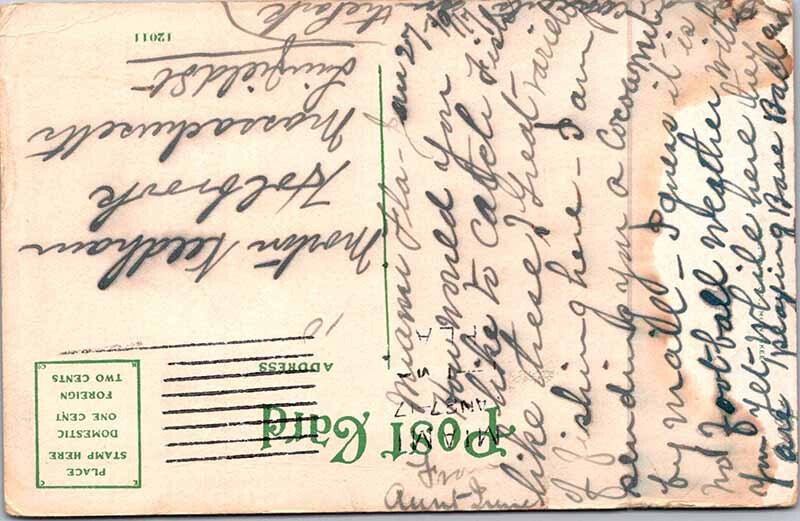 Post Card
ADDRESS
PLACE
STAMP HERE
DOMESTIC
ONE CENT
FOREIGN
TWO CENTS
MIAMI
FLA
12011
Morton Needham
Holbrook
Massachusetts
Miami Fla - Jan 27
How would you
like to catch Fish
like these? Great variety
of fishing here - I am
sending you a Cocoanut
by mail - I guess it is
not foot-ball weather with
you yet - while here they
are playing Base Ball
in the Park
From
Aunt Irene